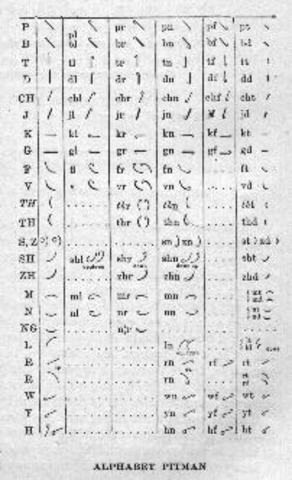 P pl pr pn pf pt
B bl br bn bf bd
T tl tr tn tf tt
D dl dr dn df dd
CH chl chr chn chf cht
J jl jr jn jf jd
K kl kr kn kf kt
G gl gr gn gf gd
F fl fr fn ft
V vr vn vd
TH thr thn tht
TH thr thn thd
S, Z sn zn st zd
SH shl shr shn sht
ZH zhr zhn zhd
M ml mr mn
N nl nr nn
NG ngr
L ln
R rn rf rt
R rn
W wn wf wt
Y yn yf yt
H hn hf ht
ALPHABET PITMAN